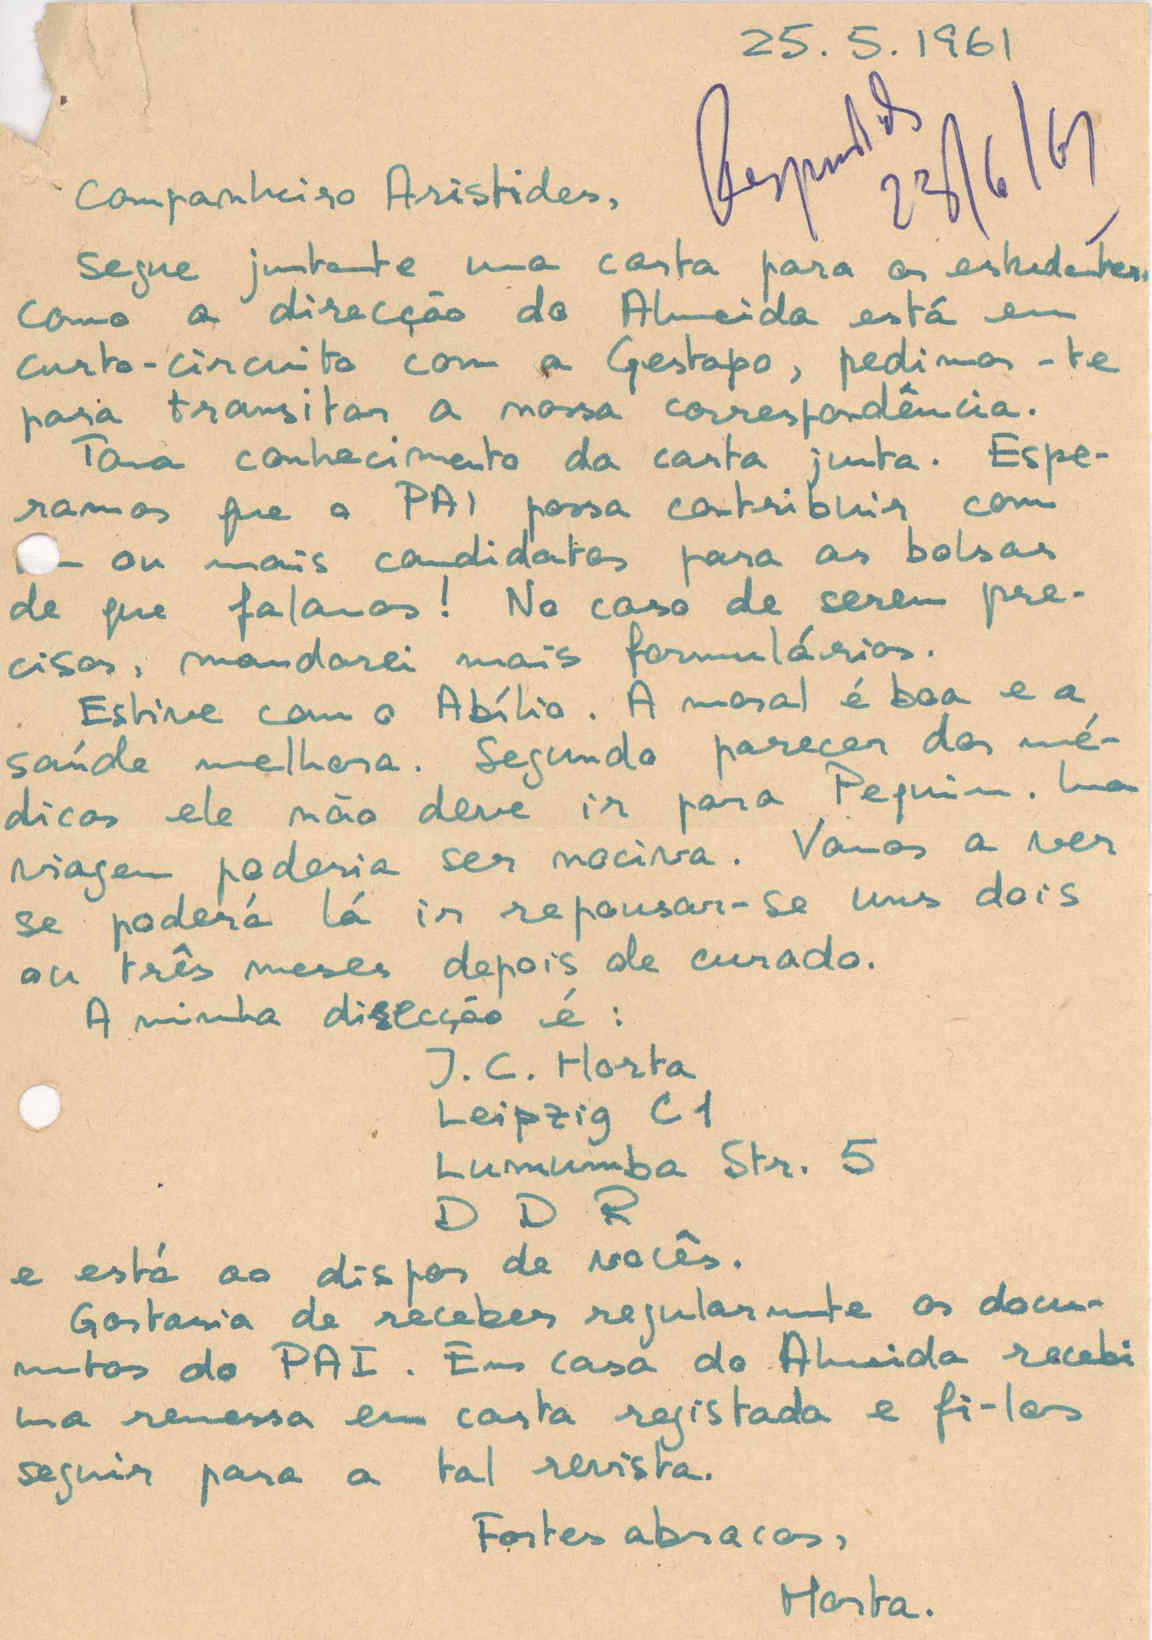 25.5.1961
Respondido
23/6/61
Companheiro Aristides,
Segue juntante uma carta para os estudantes.
Como a direcção do Almeida está em
curto-circuito com a Gestapo, pedimos-te
para transitar a nossa correspondência.
Toma conhecimento da carta junta. Espe-
ramos que o PAI possa contribuir com
ou mais candidatos para as bolsas
de que falamos! No caso de serem pre-
cisos, mandarei mais formulários.
Estive com o Abílio. A moral é boa e a
saúde melhora. Segundo parecer dos mé-
dicos ele não deve ir para Pequim. Uma
viagem poderia ser nociva. Vamos a ver
se poderá lá ir repousar-se uns dois
ou três meses depois de curado.
A minha direcção é:
J.C. Horta
Leipzig C1
Lumumba Str. 5
D D R
e está ao dispor de vocês.
Gostaria de receber regularmente os docu-
mentos do PAI. Em casa do Almeida recebi
uma remessa em carta registada e fi-los
seguir para a tal revista.
Fortes abraços,
Horta.